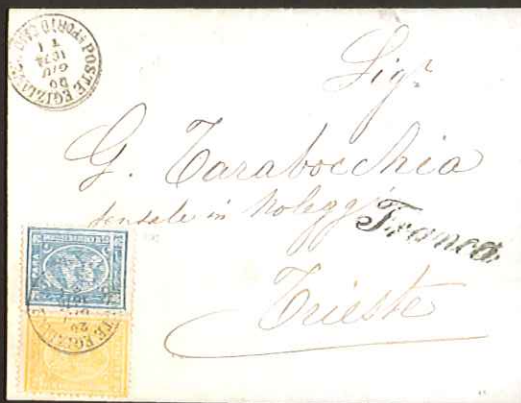 POSTE EGIZIANE
PORTO SAID
20
GIU
1874
T I
Sigr
G. Tarabocchia
sensale in Noleggi
Franca
Trieste
PARA
POSTE EGIZIANE